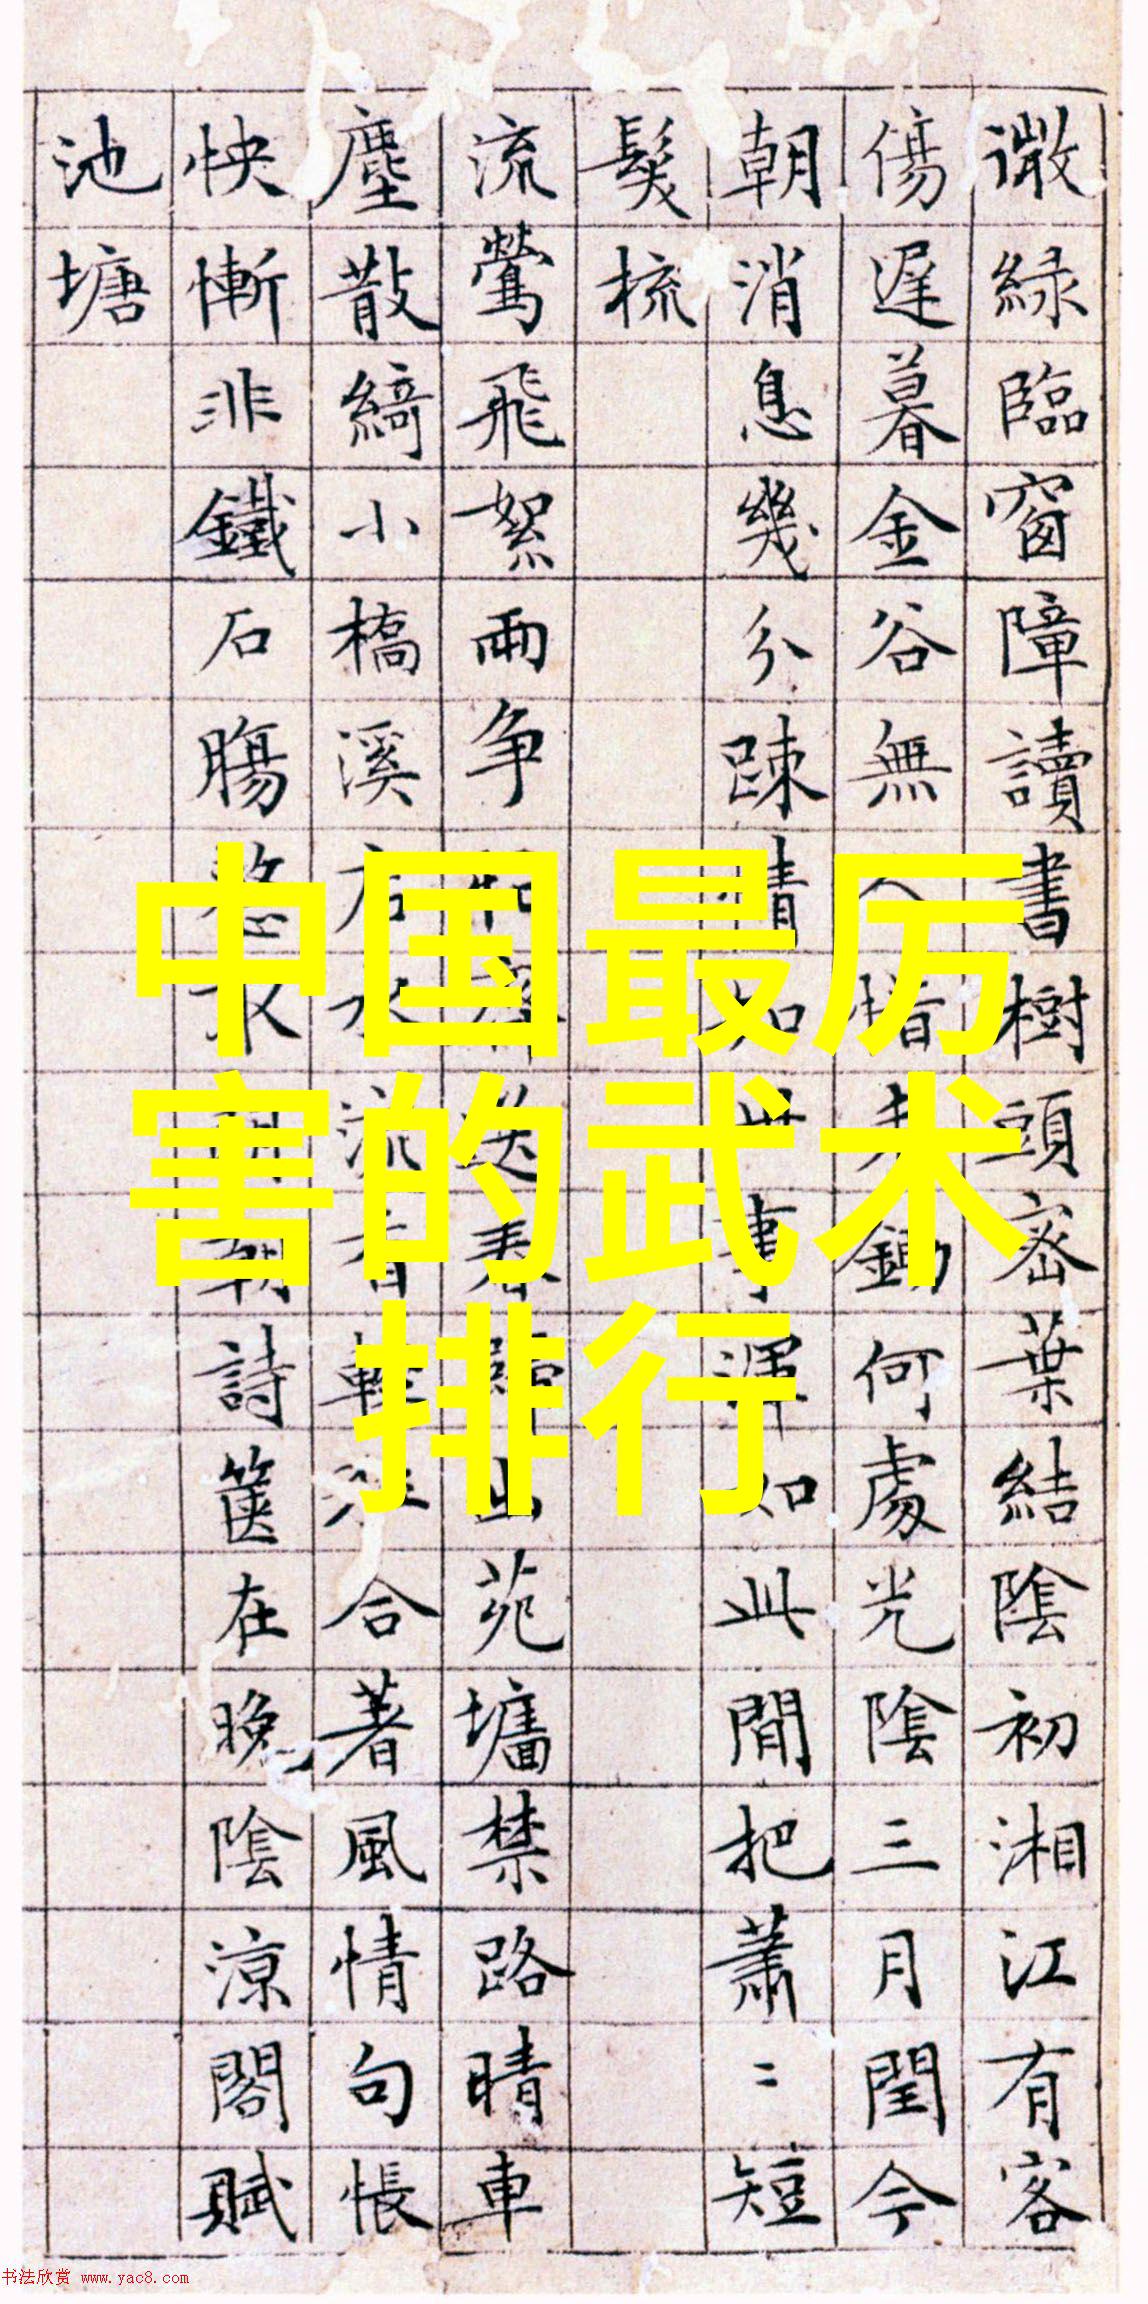 微綠臨窗障讀書樹頭密葉結陰初湘江有客
傷遲暮金谷無人惜鋤何處光陰三月閏今
朝消息幾分踈情世事渾如此間把蕭〻短
髮梳
流鶯飛絮兩争春出苑墻禁路晴車
塵散綺小橋溪水流合著風情句悵
怏慚非鐵石腸愁朝詩篋在晚陰涼閣賦
池塘
中国最厉
害的武术
排行
书法欣赏 www.yac8.com